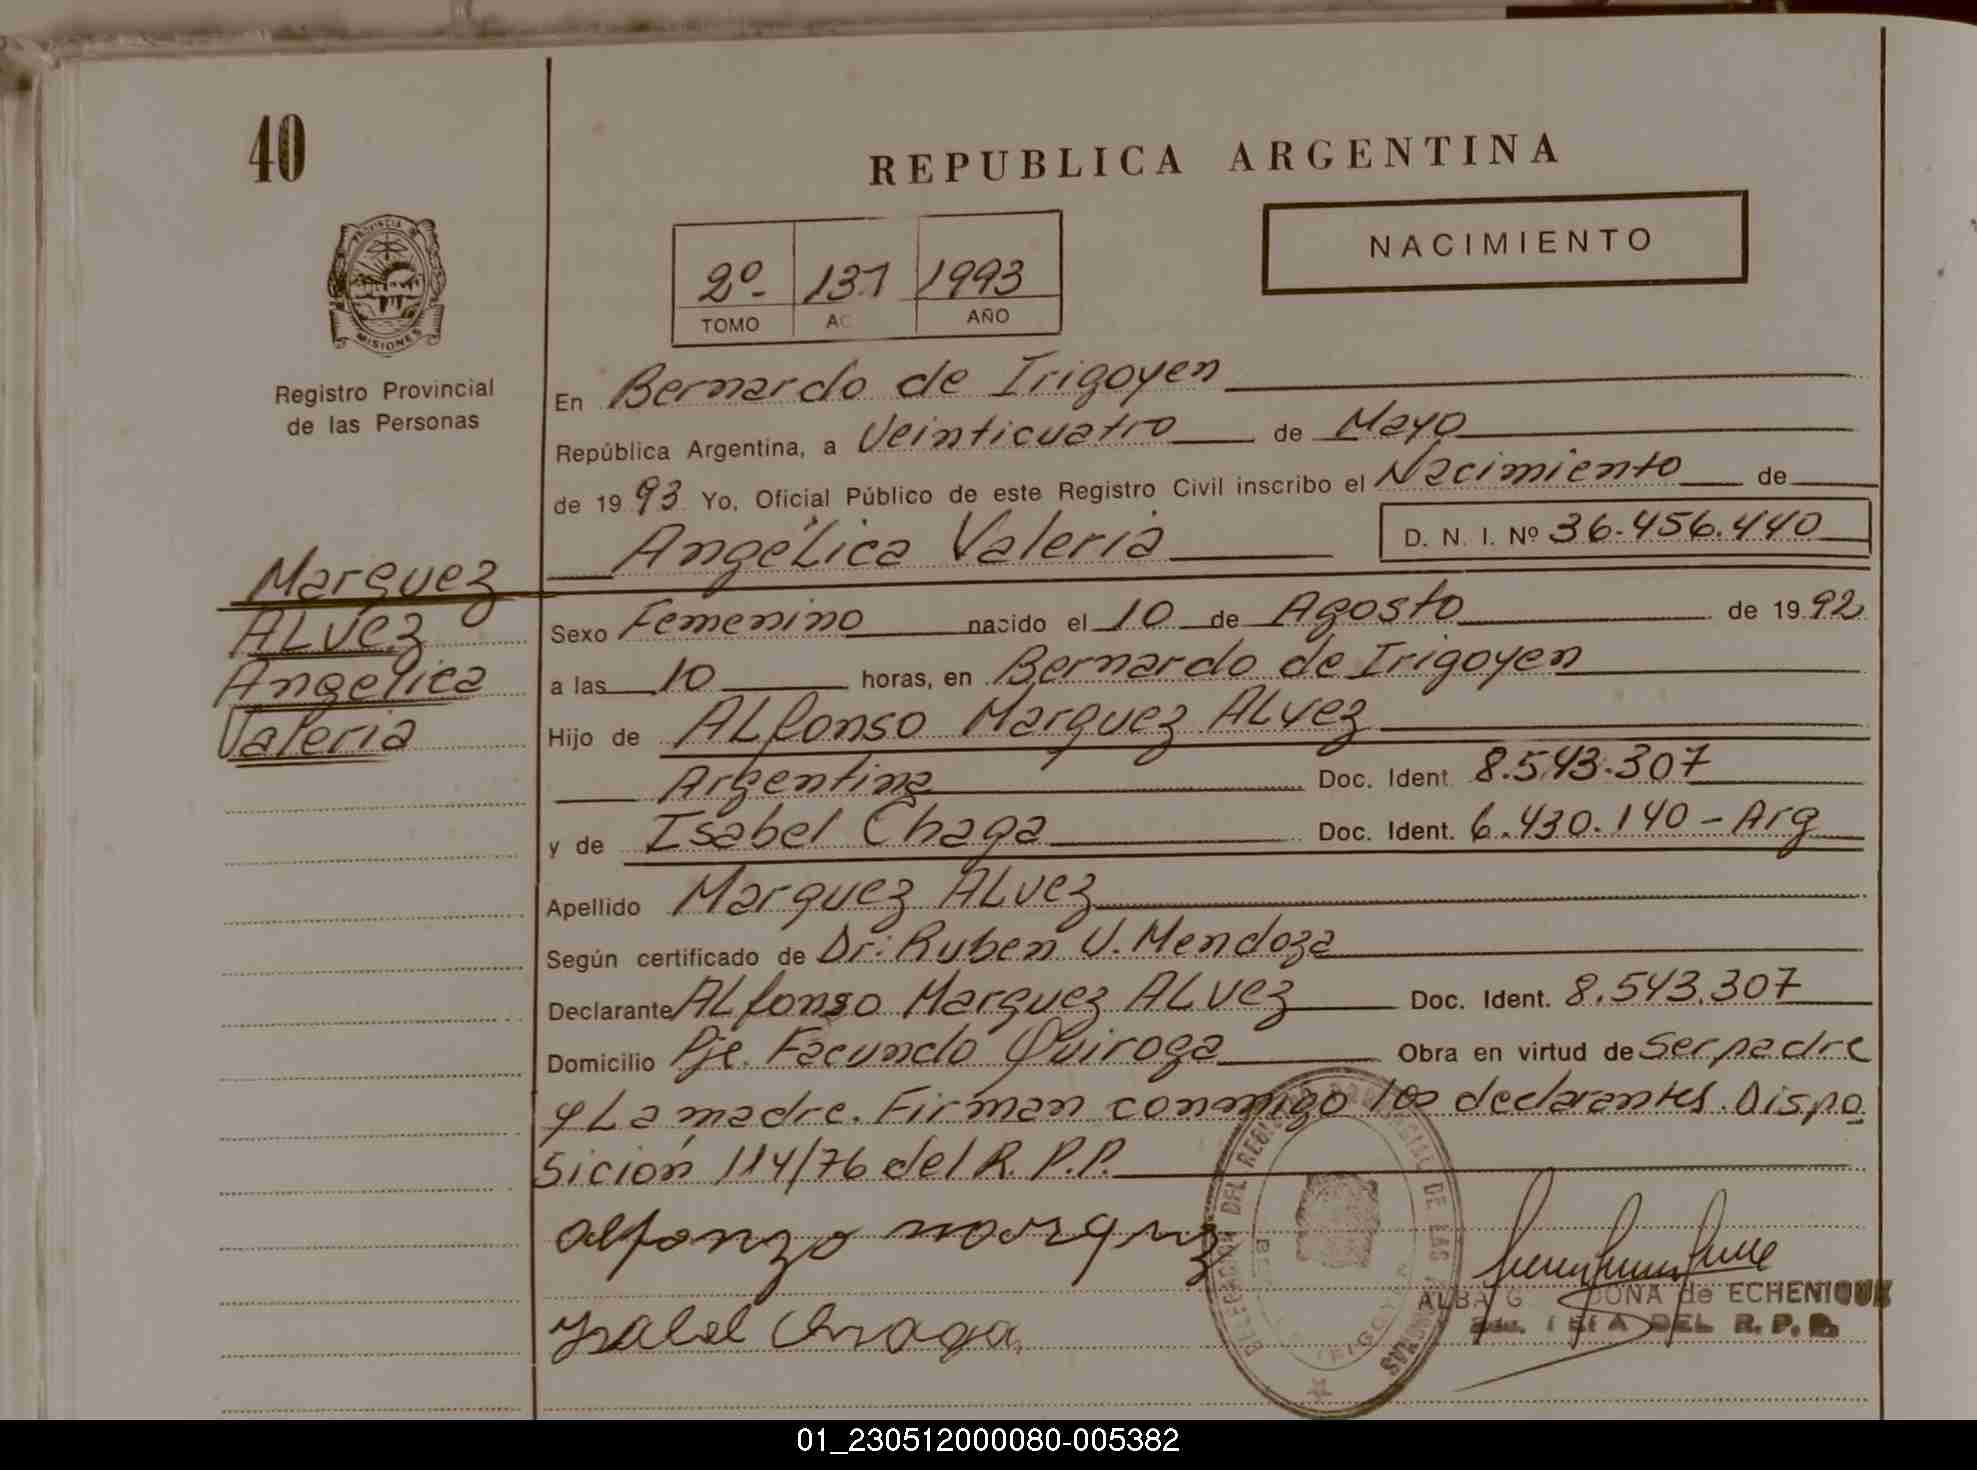 40
REPUBLICA ARGENTINA
NACIMIENTO
2º- 131 1993
TOMO AC AÑO
PROVINCIA DE
MISIONES
Registro Provincial
de las Personas
En Bernardo de Irigoyen
República Argentina, a Veinticuatro de Mayo
de 1993 Yo, Oficial Público de este Registro Civil inscribo el Nacimiento de
Angélica Valeria D. N. I. Nº 36.456.440
Marquez
ALvez
Angelica
Valeria
Sexo Femenino nacido el 10 de Agosto de 1992
a las 10 horas, en Bernardo de Irigoyen
Hijo de ALfonso Marquez ALvez
Argentina Doc. Ident. 8.543.307
y de Isabel Chaga Doc. Ident. 6.430.140 - Arg
Apellido Marquez ALvez
Según certificado de Dr: Ruben V. Mendoza
Declarante ALfonso Marquez ALvez Doc. Ident. 8.543.307
Domicilio Pje. Facundo Quiroga Obra en virtud de Ser padre
y La madre. Firman conmigo los declarantes. Dispo
sición 114/76 del R.P.P.
alfonzo marquez
Ysabel Chaga
DELEGACION DEL REGISTRO PROVINCIAL DE LAS PERSONAS
IRIGOYEN
ALBA G DONA de ECHENIQUE
DEL R. P. P.
01_230512000080-005382